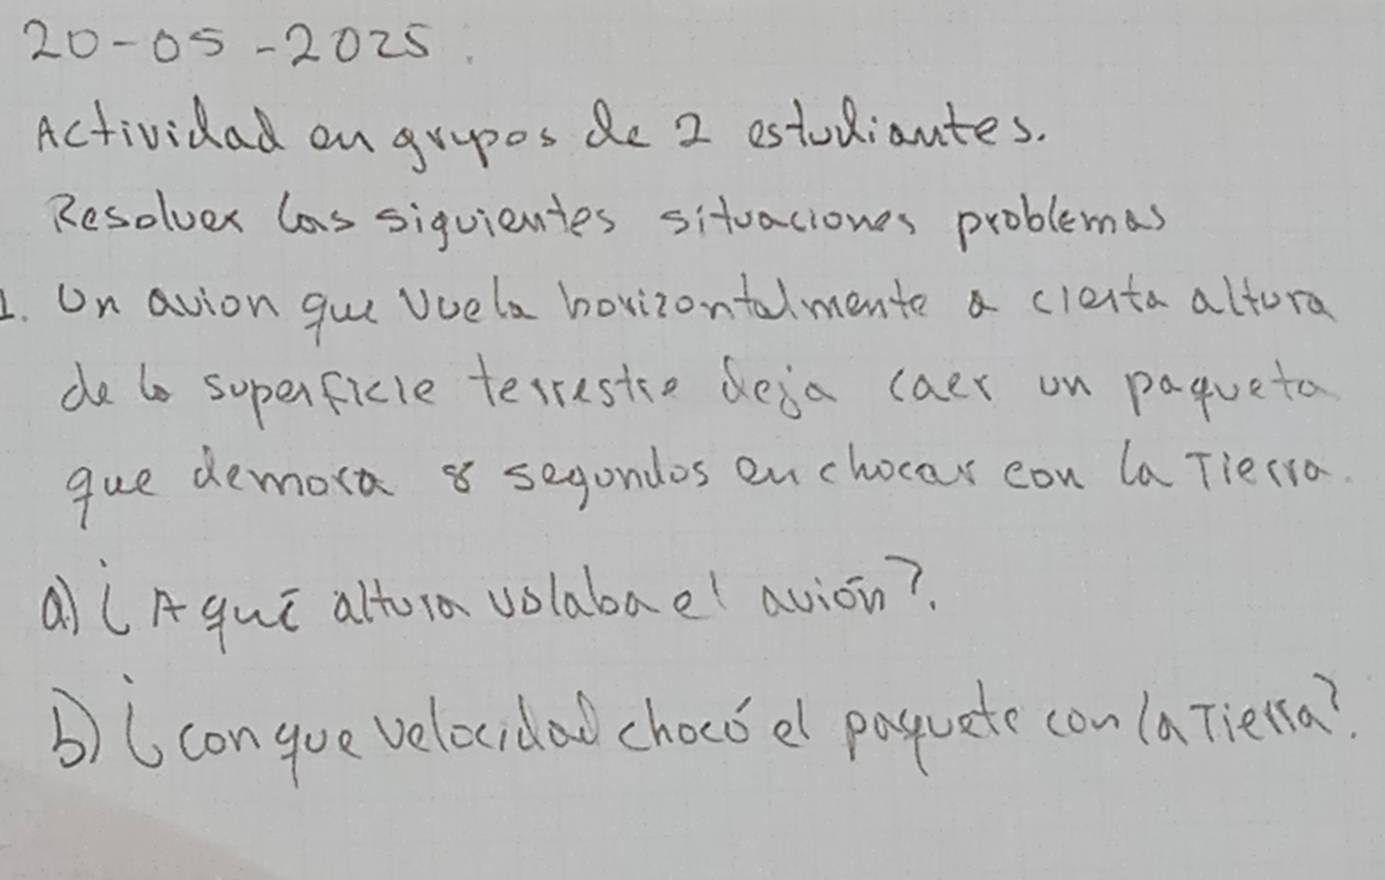 20-05-2025.
Actividad en grupos de 2 estudiantes.
Resolver las siguientes situaciones problemas
1. Un avion que vuela horizontalmente a cierta altura
de la superficie terrestre deja caer un paquete
que demora 8 segundos en chocar con la Tierra.
a) ¿A qué altura volaba el avión?.
b) ¿con que velocidad chocó el paquete con la Tierra?.